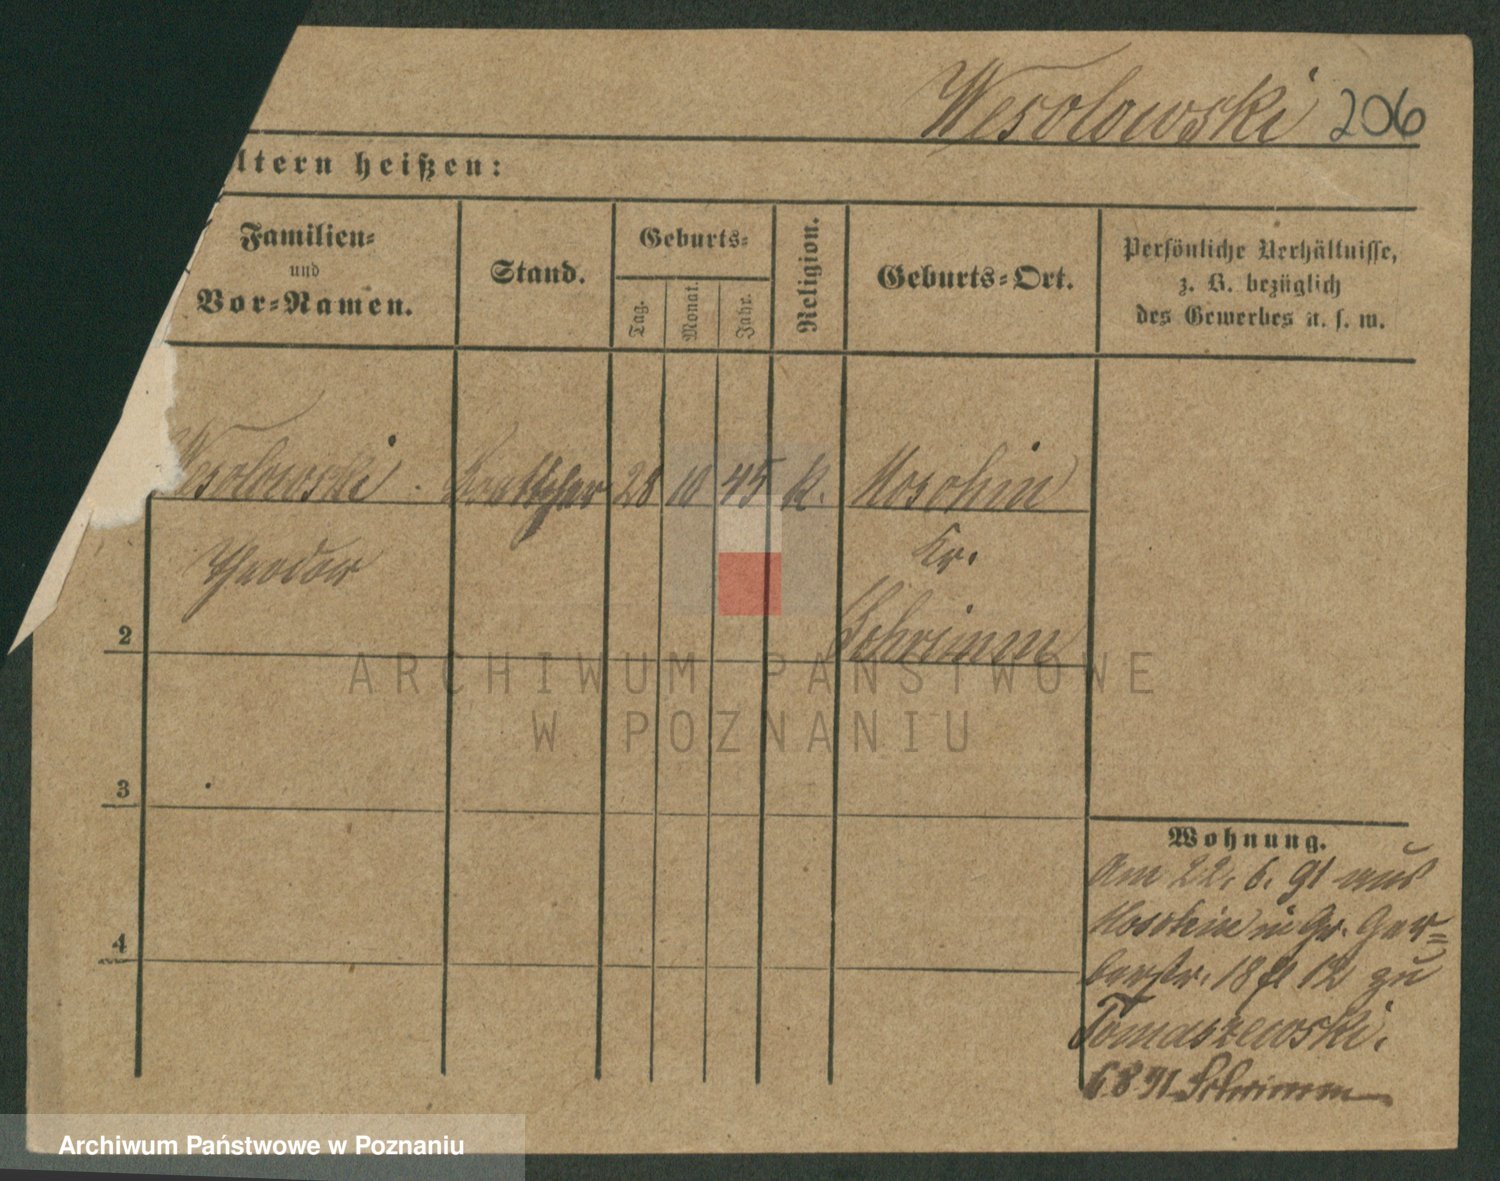 Wesolowski 206
ltern heißen:
Familien-
und
Vor-Namen.
Stand.
Geburts-
Tag.
Monat.
Jahr.
Religion.
Geburts-Ort.
Persönliche Verhältnisse,
z. B. bezüglich
des Gewerbes u. s. w.
Wesolowski
Boettcher
28
10
45
k.
Moschin
Theodor
Kr.
Schrimm
2
3
4
Wohnung.
Am 22. 6. 91 aus
Moschin in Gr. Ger-
berstr. 18 12 zu
Tomaszewski.
6 8 91 Schrimm
ARCHIWUM PAŃSTWOWE
W POZNANIU
Archiwum Państwowe w Poznaniu